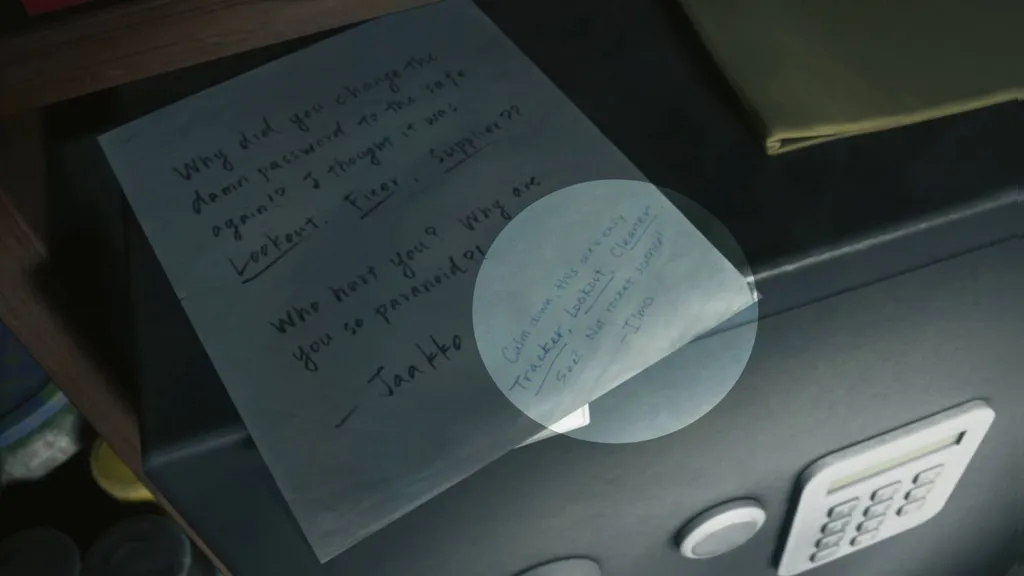 Why did you change the
damn password to the safe
again!? I thought it was
Lookout. Fixer. Supplier??
Who hurt you? Why are
you so paranoid?!
— Jaakko
Calm down, this was easy
Tracker, Lookout, Cleaner
See? No rocket science
- Ilmo